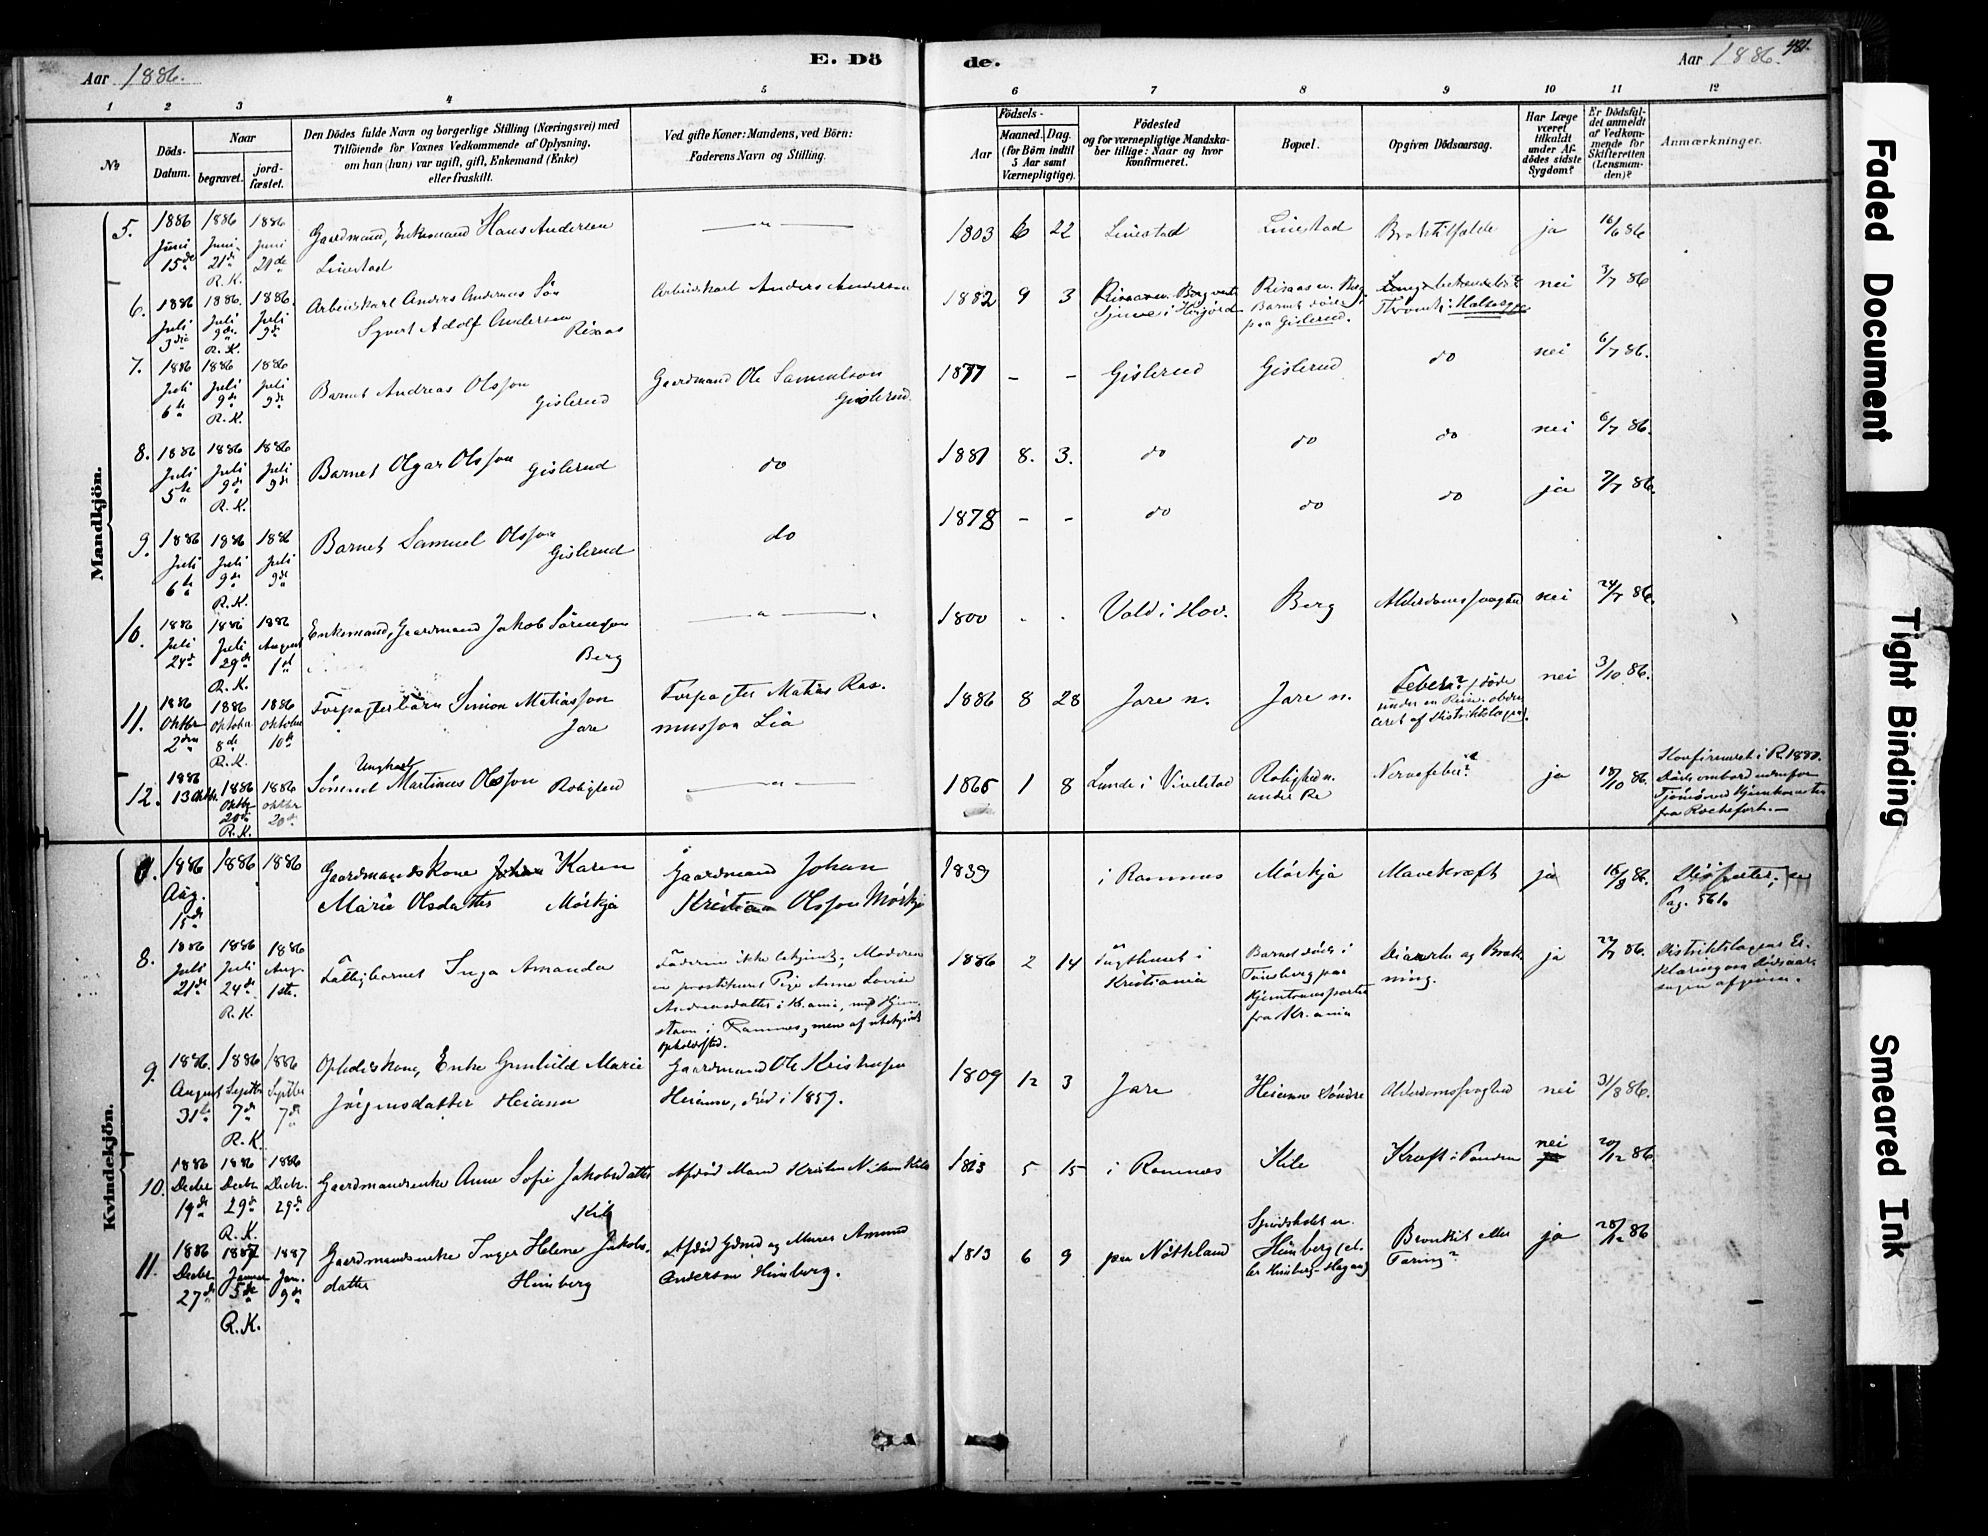 Aar 1886.
E. Dö
de.
Aar 1886.
481.
1 2 3 4 5 6 7 8 9 10 11 12
№
Döds-
Datum.
Naar
begravet.
jord-
fæstet.
Den Dödes fulde Navn og borgerlige Stilling (Næringsvei) med
Tilföiende for Voxnes Vedkommende af Oplysning,
om han (hun) var ugift, gift, Enkemand (Enke)
eller fraskilt.
Ved gifte Koner: Mandens, ved Börn:
Faderens Navn og Stilling.
Födsels-
Aar
Maaned.
Dag.
(for Börn indtil
5 Aar samt
Værnepligtige).
Födested
og for værnepligtige Mandska-
ber tillige: Naar og hvor
konfirmeret.
Bopæl.
Opgiven Dödsaarsag.
Har Læge
været
tilkaldt
under Af-
dödes sidste
Sygdom?
Er Dödsfal-
det anmeldt
af Vedkom-
mende for
Skifteretten
(Lensman-
den)?
Anmærkninger.
Mandkjön.
5. 1886 Juni 15de
1886 Juni 21de R.K.
1886 Juni 21de
Gaardmand, Enkemand Hans Andersen
Linestad
1803 6 22 Linestad Linestad ja 16/6 86
6. 1886 Juli 3die
1886. Juli 9de R.K.
1886. Juli 9de
Arbeidskarl Anders Andersens Søn
Syvert Adolf Andersen
Rixaas
Arbeidskarl Anders Andersen
1882 9 3
Barnet døde
paa Gislerud.
nei 3/7 86
7. 1886 Juli 6te
1886 Juli 9de R.K.
1886 Juli 9de
Barnet Andreas Olsson
Gislerud
Gaardmand Ole Samuelson
Gislerud.
1877 - - Gislerud Gislerud do nei 6/7 86.
8. 1886 Juli 5te
1886 Juli 9de R.K.
1886 Juli 9de
Barnet Olgar Olsson
Gislerud
do
1881 8. 3. do do do nei 6/7 86.
9. 1886 Juli 6te
1886 Juli 9de R.K.
1886 Juli 9de
Barnet Samuel Olsson
Gislerud
do
1878 - - do do do ja 7/7 86.
10. 1886 Juli 24de
1886 Juli 29de R.K.
1886 August 1st
Enkemand, Gaardmand Jakob Sörensson
Berg
1800 Vold i Hov. Berg Alderdomssvaghed nei 24/7 86.
11. 1886 Oktbr 2den
1886 Oktober 8de R.K.
1886 Oktober 10de
Forpagterbarn Simon Matiasson
Jare
Forpagter Matias Ras-
musson Lia
1886 8 28 Jare n. Jare n.
Feber? / døde
under en Reise
nei 3/10 86.
12. 1886 13 Oktbr.
1886 Oktbr 20de R.K.
1886 Oktbr 20de
Ungkarl
Sömand Martinius Olsson Rolighed
1865 1 8 Lunde i Vivelstad
Rolighed n.
under Re
Nervefeber?
ja 18/10 86.
Konfirmeret i R. 1880.
fra Rochefort.
Kvindekjön.
1886 Aug. 15de
1886
1886
Gaardmandskone Karen
Marie Olsdatter Mörkja
Gaardmand Johan
Kristian Olsson Mörkja
1839 i Ramnes Mörkja Mavekræft ja 16/8 86.
Pag. 561.
8. 1886 Juli 21de
1886 Juli 24de R.K.
1886 Aug. 1ste.
Fattigbarnet Inga Amanda
Faderen ikke bekjendt; Moderen
en prostitueret Pige Anne Lovise
Andreasdatter i Kr.ania, med Hjem-
stavn i Ramnes, men af ubekjendt
opholdssted.
1886 2 14
Tugthuset i
Kristiania
Barnet døde i
Tönsberg paa
Hjemtransporten
fra Kr.ania
Diarrhe og Bræk-
ning.
ja 22/7 86.
Distriktslægens Er-
klæring om Dödsaar-
sagen afgiven.
9. 1886. August 31te
1886 Septbr 7de R.K.
1886 Septbr 7de
Opholdskone, Enke Gunhild Marie
Jörgensdatter Heiann
Gaardmand Ole Kristensen
Heiann, död i 1859.
1809 12 3 Jare Heiann Söndre Alderdomssvaghed nei 31/8 86.
10. 1886 Decbr 19de
1886 Decbr 29de R.K.
1886 Decbr. 29de
Gaardmandsenke Anne Sofie Jakobsdatter
Kile
Afdöd Mand Kristen Nilsen Kile
1813 5 15 i Ramnes Kile Kræft i Panden nei 20/12 86
11. 1886 Decbr 27de
1887 Januar 5te R.K.
1887 Jan. 9de
Gaardmandsenke Inger Helene Jakobs-
datter Himberg
Afdöd Gdmd og Murer Amund
Anderson Himberg.
1813 6 9 paa Nötteland
Himberg
Bronkit eller
Tæring?
ja 28/12 86
Faded Document
Tight Binding
Smeared Ink